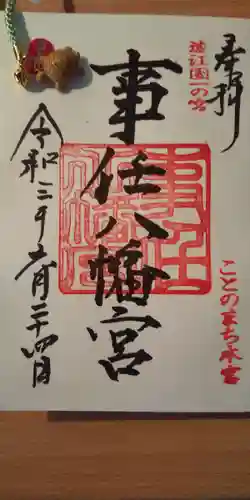 奉拝
遠江國一の宮
ことのまち本宮
事任八幡宮
令和三年六月二十四日